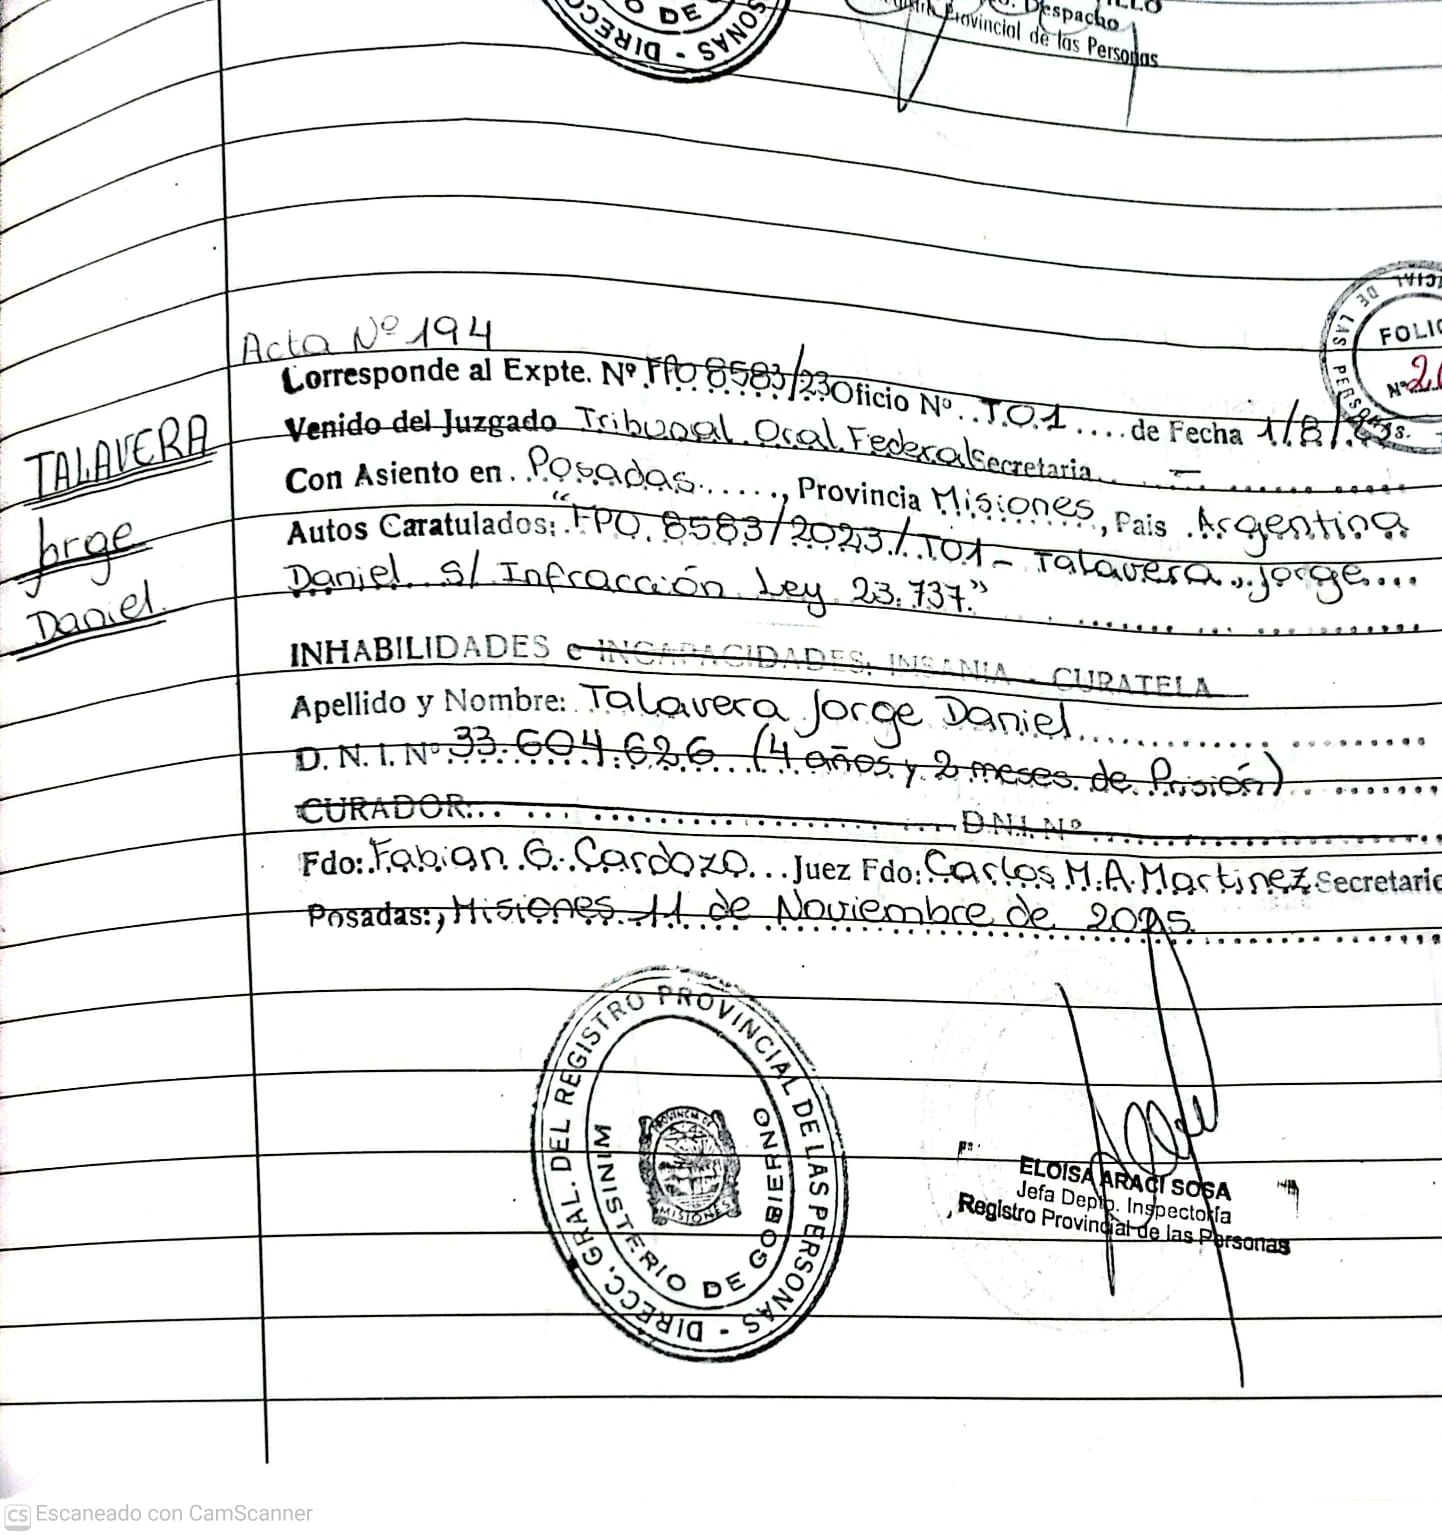 DE
DIRECC
SONAS
Despacho
Provincial de las Personas
Acta Nº 194
Corresponde al Expte. Nº FPO 8583/23 Oficio Nº.. TO1 .... de Fecha 1/8/
Venido del Juzgado Tribunal Oral Federal Secretaria —
Con Asiento en. Posadas....., Provincia Misiones, Pais Argentina
Autos Caratulados: "FPO. 8583/2023/TO1 – Talavera Jorge...
Daniel S/ Infracción Ley 23.737."
TALAVERA
Jorge
Daniel.
INHABILIDADES e INCAPACIDADES, INSANIA - CURATELA
Apellido y Nombre: Talavera Jorge Daniel
D. N. I. Nº 33.604.626 (4 años y 2 meses de Prisión)
CURADOR: D.N.I. Nº
Fdo: Fabian G. Cardozo... Juez Fdo: Carlos M.A. Martinez Secretario
Posadas:, Misiones 11 de Noviembre de 2025
CIAL DE LAS PERSONAS
FOLIO
Nº
DIRECC. GRAL. DEL REGISTRO PROVINCIAL DE LAS PERSONAS -
MINISTERIO DE GOBIERNO
PROVINCIA DE
MISIONES
ELOISA ARACI SOSA
Jefa Depto. Inspectoría
Registro Provincial de las Personas
CS Escaneado con CamScanner